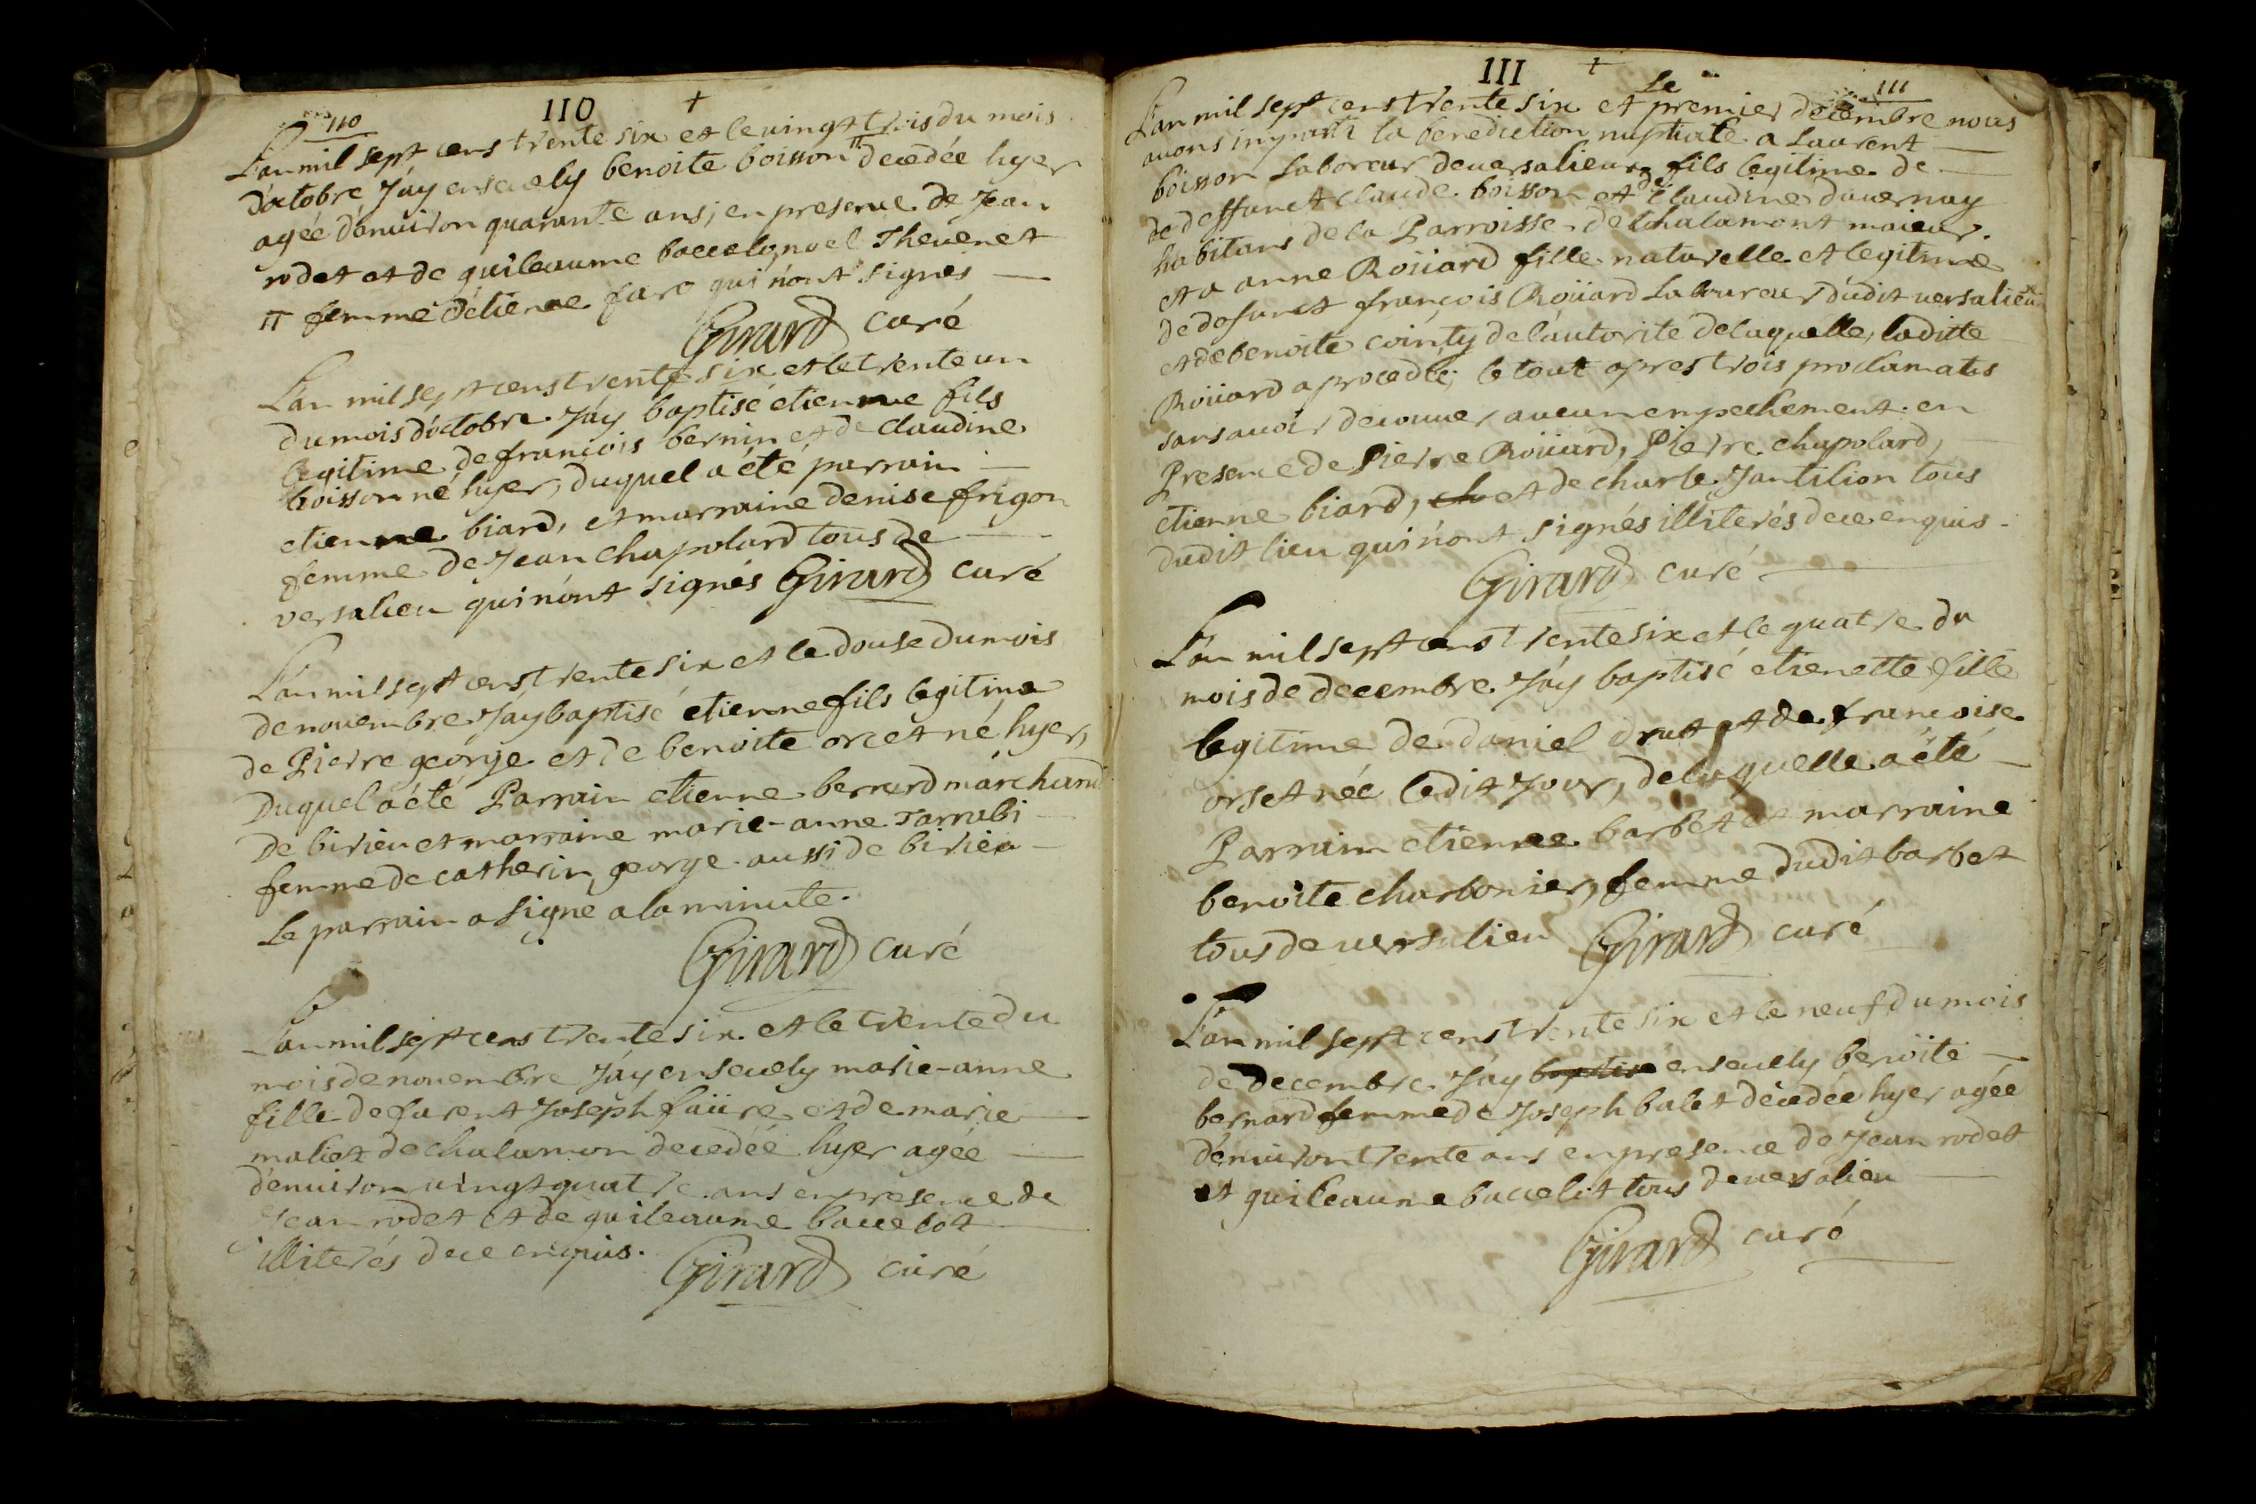 110
110 +
L'an mil sept cens trente six et le vingt trois du mois
d'octobre J'ay ensevely benoite boisson π decedée hyer
agée d'environ quarante ans, en presence de Jean
rodet et de guileaume baccelo, noel Thevenet
π femme d'étienne faro qui n'ont signés
Girard curé
L'an mil sept cens trente six et le trente un
du mois d'octobre J'ay baptisé étienne fils
legitime de françois bernin et de claudine
boisson né hyer, duquel a été parrain
etienne biard, et marraine denise frigon
femme de Jean chapolard tous de
versalieu qui n'ont signés Girard curé
L'an mil sept cens trente six et le douse du mois
de novembre J'ay baptisé etienne fils legitime
de Pierre george et de benoite orcet né hyer,
Duquel a été Parrain etienne bernard marchand
De birieu et marraine marie-anne Tarrabi
femme de catherin george aussi de birieu
Le parrain a signe a la minute.
Girard curé
L'an mil sept cens trente six et le trente du
mois de novembre J'ay ensevely marie-anne
fille de furent Joseph faüre et de marie
maliet de chalamon decedée hyer agée
d'environ vingt quatre ans en presence de
Jean rodet et de guileaume baccelot
illiterés de ce enquis.
Girard curé
111 +
111
L'an mil sept cens trente six et Le premier decembre nous
avons imparti la benediction nuptiale a Laurent
boisson Laboreur de versalieux fils legitime de
de deffunct claude boisson et de claudine duvernay
habitans de la Parroisse de Chalamont maieur.
et a anne Roüard fille naturelle et legitime
de defunct françois Roüard Laboureur dudit versalieux
et de benoite cointy de l'autorité de laquelle, laditte
Roüard a procedté; le tout apres trois proclamatıs
sans avoir decouver aucun empechement. en
Presence de Pierre Roüard, Pierre chapolard,
etienne biard, et de charle Jantilion tous
dudit lieu qui n'ont signés illiterés de ce enquis.
Girard curé
L'an mil sept cens trente six et le quatre du
mois de decembre J'ay baptisé etienette fille
legitime de daniel drut et de françoise
orset née ledit Jour, de laquelle a été
Parrain etienne barbet et marraine
benoite charbonier, femme dudit barbet
tous de versalieu Girard curé
L'an mil sept cens trente six et le neuf du mois
de decembre J'ay baptisé ensevely benoite
bernard femme de Joseph balet décedée hyer agée
d'environ trente ans en presence de Jean rodet
et guileaume baccelit tous de versalieu
Girard curé